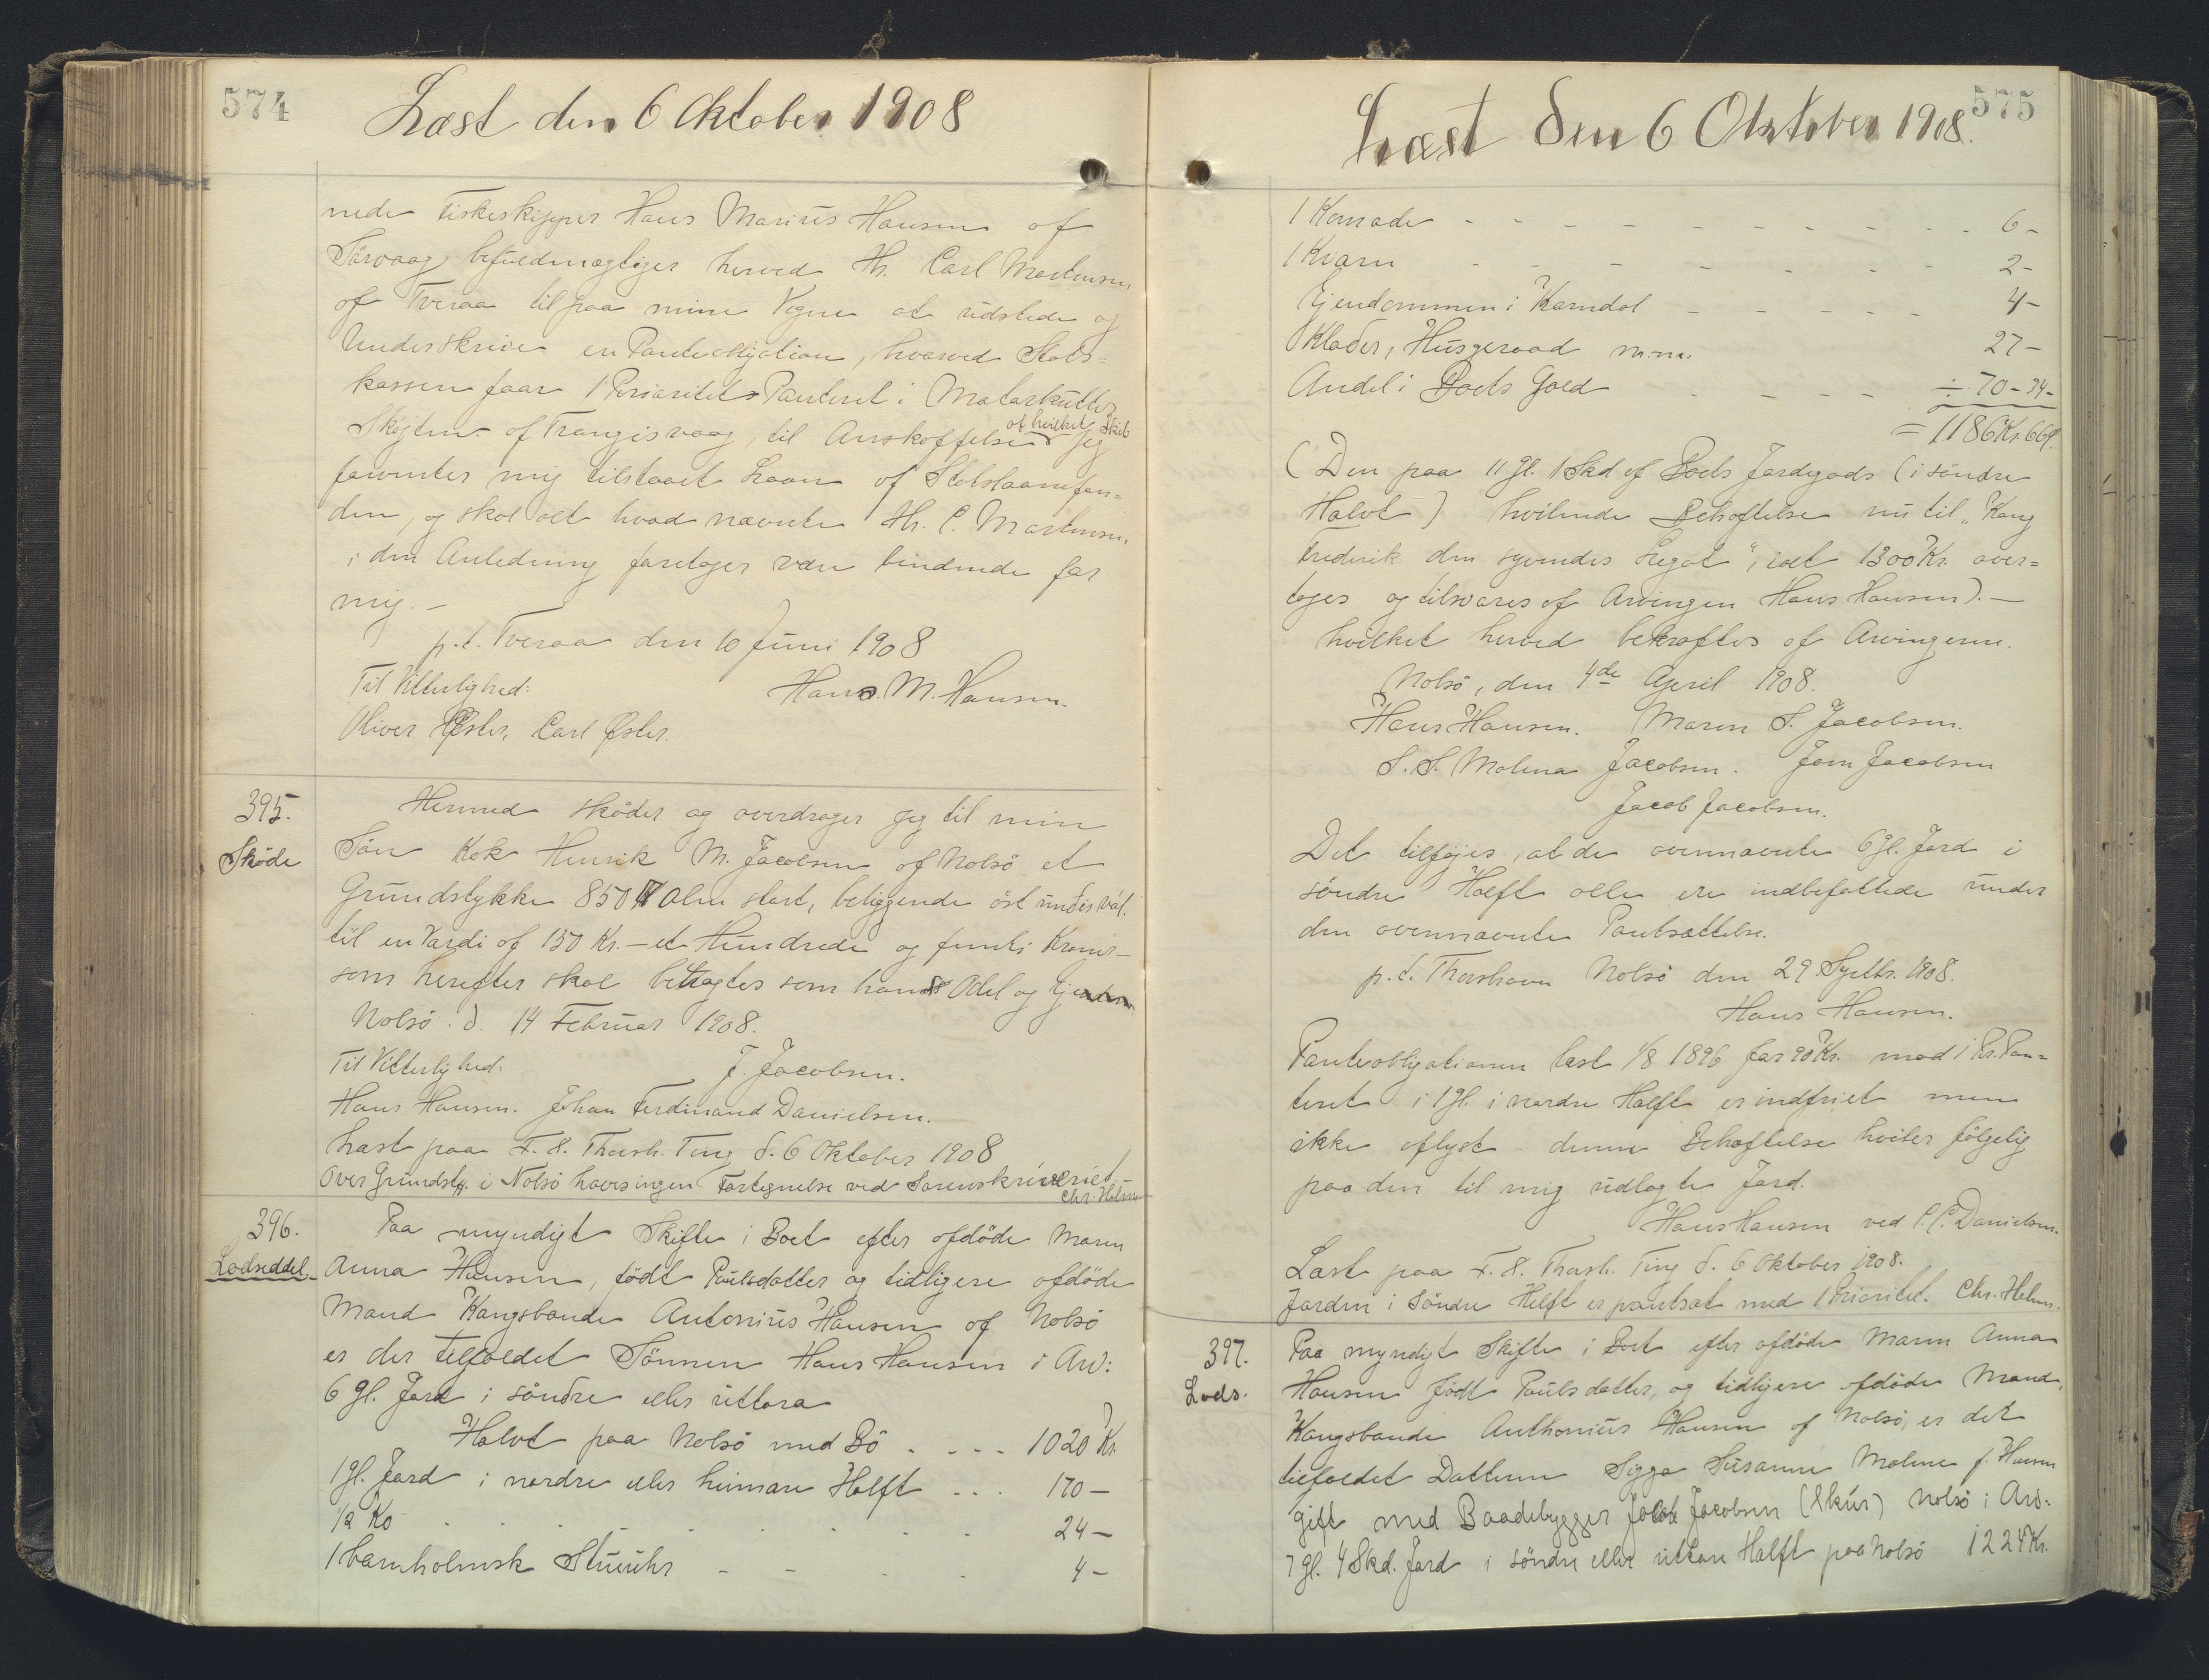 574
Læst den 6 Oktober 1908
nede Fiskeskipper Hans Marius Hansen af
Sørvaag befuldmægtiger herved Hr. Carl Mortensen
af Tveraa til paa mine Vegne at udstede og
Underskrive en Panteobligation, hvorved Stats-
kassen faar 1 Prioritets Panteret i Motorkutter
Skøjten af Trangisvaag, til Anskaffelse af hvilket Skib jeg
forventer mig tilstaaet Laan af Statslaanefon-
den, og skal alt hvad nævnte Hr. C. Mortensen
i den Anledning foretager være bindende for
mig.-
p.t. Tveraa den 10 Juni 1908
Til Vitterlighed: Hans. M. Hansen.
Oliver Øster, Carl Øster.
395. Hermed skøder og overdrager jeg til min
Skøde Søn Kok Henrik M. Jacobsen af Nolsø et
Grundstykke 850 Alen stort, beliggende öst undis Vát.
til en Værdi af 150 Kr. - et Hundrede og femti Kroner -
som herefter skal betragtes som hans Odel og Ejendom.
Nolsö. d. 14 Februar 1908.
Til Vitterlighed: J. Jacobsen.
Hans Hansen. Johan Ferdinand Danielsen.
Læst paa F. S. Thorsh. Ting d. 6 Oktober 1908
Over Grundstk. i Nolsö haves ingen Fortegnelse ved Sorenskriveriet
Chr. Holm
396. Paa myndigt Skifte i Boet efter afdöde Maren
Lodseddel. Anna Hansen, födt Poulsdatter og tidligere afdöde
Mand Kongsbonde Antonius Hansen af Nolsö
er der tilfaldet Sönnen Hans Hansen i Arv:
6 gl. Jord i söndre eller uttara
Halvt paa Nolsö med Bö . - - - 1020 Kr.
1 gl. Jord i nordre eller heimare Halft - - . 170 -
1/2 Ko . . . . . . . . 24 -
1 bornholmsk Stuuhr - - . . 4 -
575
Læst den 6 Oktober 1908.
1 Komode - - - - - - - - - - 6 -
1 Kværn - - - - - - - 2 -
Ejendommen i Korndal - - - - - 4 -
Klæder, Husgeraad m.m. 27 -
Andel i Boets Gæld - - - - ÷ 70 - 34 -
= 1186 Kr. 66 Ø.
(Den paa 11 gl. 1 Skd af Boets Jordegods (i söndre
Halvt) hvilende Behæftelse nu til "Kong
Frederik den syvendes Legat", ialt 1300 Kr. over-
tages og tilsvares af Arvingen Hans Hansen). -
hvilket herved bekræftes af Arvingerne.
Nolsö, den 4de April 1908.
Hans Hansen. Maren S. Jacobsen.
S. S. Molina Jacobsen. Joen Jacobsen
Jacob Jacobsen.
Det tilföjes, at de ovennævnte 6 gl. Jord i
söndre Halft alle ere indbefattede under
den ovennævnte Pantsættelse.
p.t. Thorshavn Nolsö den 29 Septbr. 1908.
Hans Hansen.
Panteobligationen læst 1/8 1896 for 90 Kr. mod 1 Pr. Pan-
teret i 1 gl. i nordre Halft er indfriet men
ikke aflyst - denne Behæftelse hviler fölgelig
paa den til mig udlagte Jord.
Hans Hansen ved P. C. Danielsen.
Læst paa F. S. Thorsh. Ting d. 6 Oktober 1908.
Jorden i Söndre Helft er pantsat med 1 Prioritet. Chr. Holm.
397. Paa myndigt Skifte i Boet efter afdöde Maren Anna
Lods. Hansen födt Poulsdatter, og tidligere afdöde Mand,
Kongsbonde Anthonius Hansen af Nolsö, er det
tilfaldet Datteren Sigga Susanne Moline f. Hansen
gift med Baadebygger Jacob Jacobsen (Skúr) Nolsö i Arv:
7 gl. 4 Skd. Jord i söndre eller uttare Halft paa Nolsö 1224 Kr.